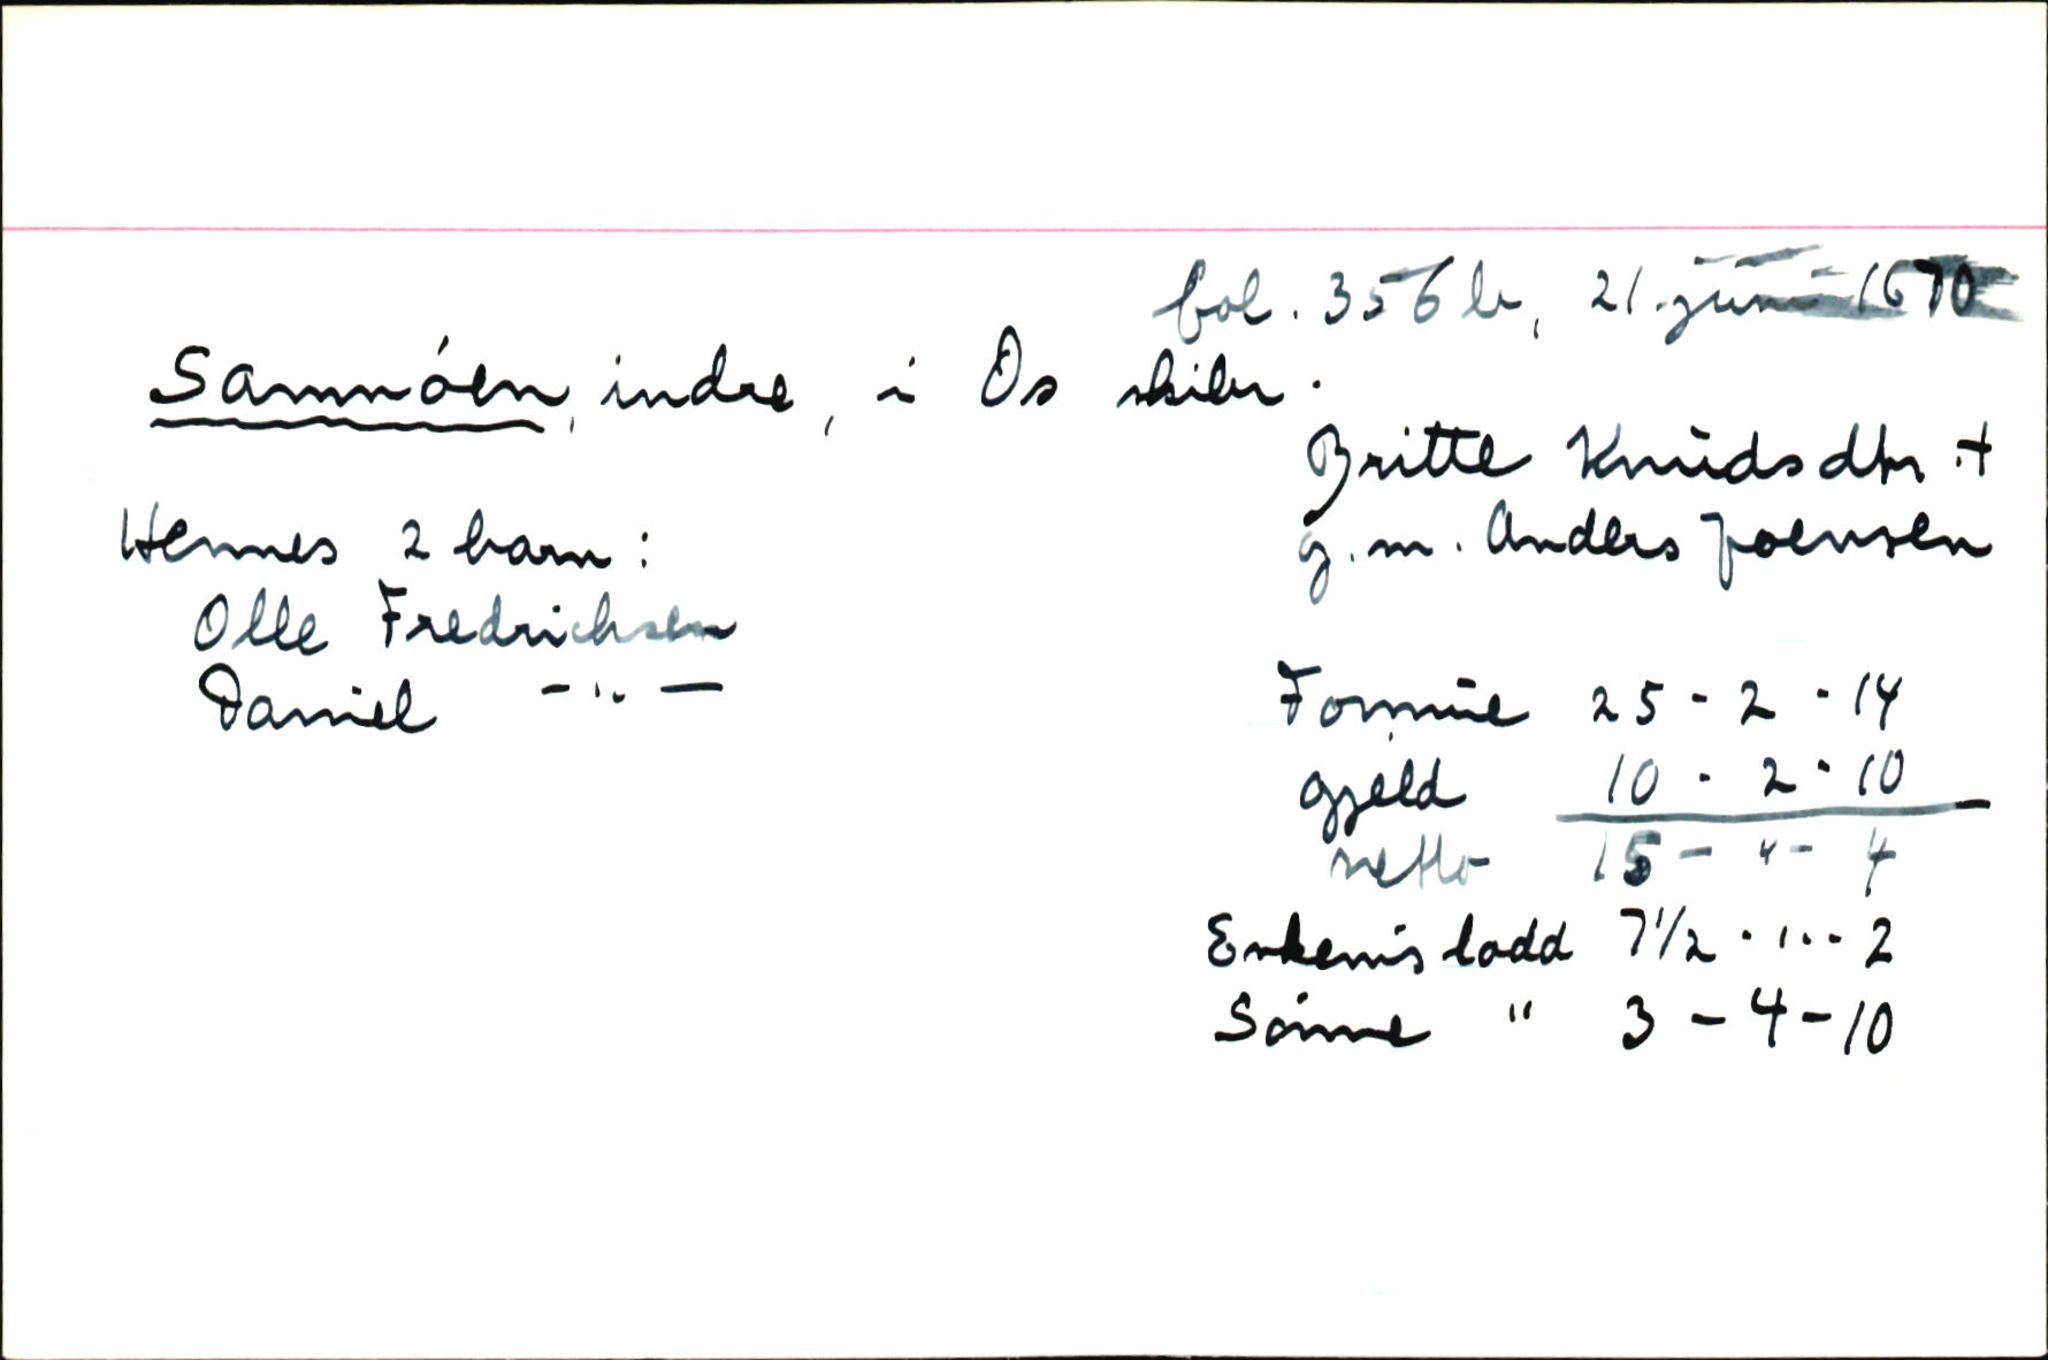 fol. 356 b, 21. juni 1670
Samnóen, indre, i Os skibr.
Britte Knüdsdtr. +
g. m. Anders Joensen
Hennes 2 barn:
Olle Fredrichsen
Daniel -"-
Formüe 25 - 2 - 14
gjeld 10 - 2 - 10
netto 15 - " - 4
Enkem's lodd 7 1/2 - " - 2
Sónne " 3 - 4 - 10